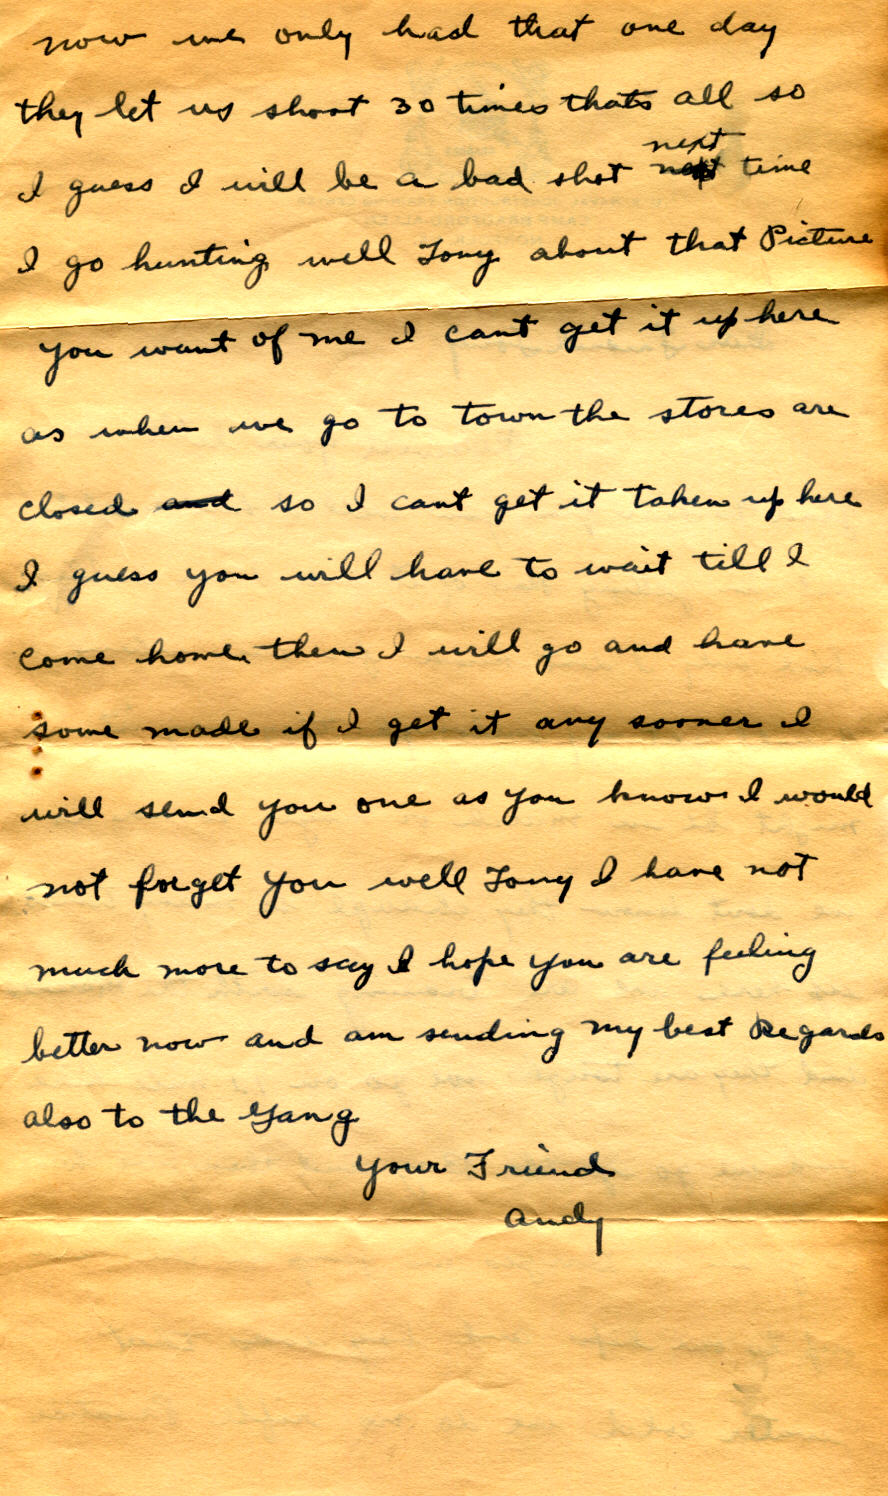 now we only had that one day
they let us shoot 30 times thats all so
next
I guess I will be a bad shot next time
I go hunting well Tony about that Picture
you want of me I cant get it up here
as when we go to town the stores are
closed and so I cant get it taken up here
I guess you will have to wait till I
come home then I will go and have
some made if I get it any sooner I
will send you one as you know I would
not forget you well Tony I have not
much more to say I hope you are feeling
better now and am sending my best Regards
also to the Gang
Your Friend
Andy